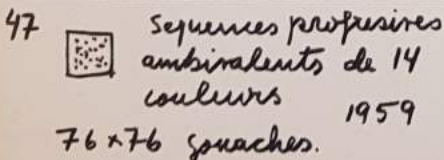 47 Sequences progresives
ambivalents de 14
couleurs
1959
76 x 76 gouaches.